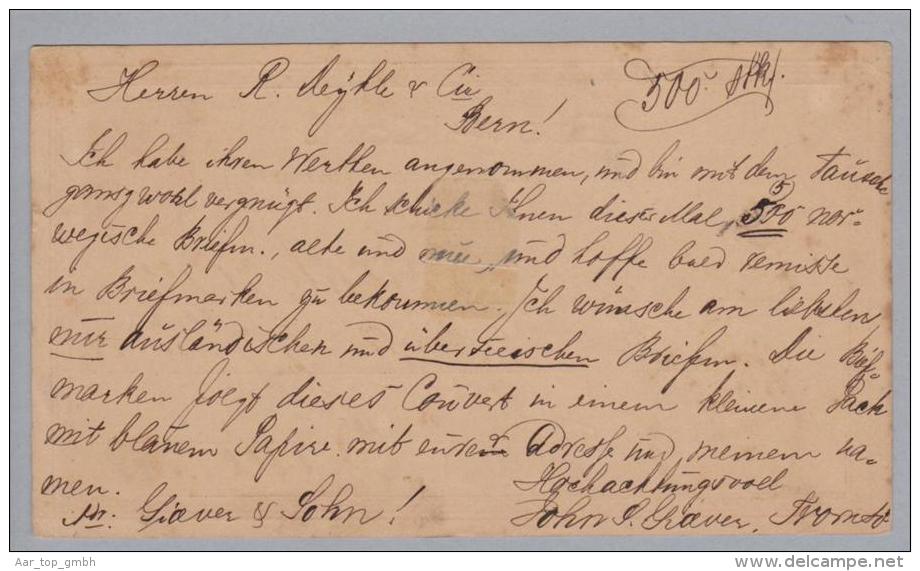 500 stk.
Herren R. Deÿhle & Cie
Bern!
Ich habe ihren Werthen angenommen, und bin mit dem Tausch
ganz wohl vergnügt. Ich schicke Ihnen dieser Mal 500 nor-
wegische Briefm., alte und neue, und hoffe bald remisse
in Briefmarken zu bekommen. Ich wünsche am liebsten
nur ausländischen und überseeischen Briefm. Die Brief-
marken folgt dieses Couvert in einem kleinene Pack
mit blauem Papire mit eurer Adresse und meinem na-
men. Hochachtungsvoll
Giæver & Sohn! John S. Giæver, Tromsö
Aar_top_gmbh
www.delcampe.net